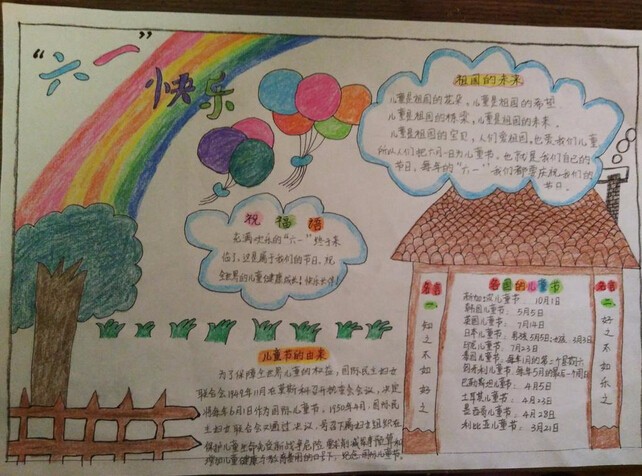 “六一”
快乐
祖国的未来
儿童是祖国的花朵，儿童是祖国的希望
儿童是祖国的栋梁，儿童是祖国的未来。
儿童是祖国的宝贝，人们爱祖国，也爱我们儿童
所以人们把六月一日为儿童节。也就是我们自己的
节日，每年的“六一”我们都要庆祝我们的
节日。
祝福语
充满欢乐的“六一”终于来
临了，这是属于我们的节日，祝
全世界的儿童健康成长！快乐
儿童节的由来
为了保障全世界儿童的权益，国际民主妇女
联合会1949年11月在莫斯科召开执委会会议，决定
将每年6月1日作为国际儿童节。1950年4月，国际民
主妇女联合会议通过决议，号召下属妇女组织在
保护儿童
增加儿童健康
名言
一
知之不如好之
各国的儿童节
新加坡儿童节：10月1日
韩国儿童节：5月5日
英国儿童节：7月14日
日本儿童节：男孩5月5日；女孩3月3日
印尼儿童节：7月23日
泰国儿童节：每年1月的第二个星期六
奥地利儿童节：每年5月的最后一个周日
巴勒斯坦儿童节：4月5日
土耳其儿童节：4月23日
墨西哥儿童节：4月28日
利比亚儿童节：3月21日
名言
二
好之不如乐之